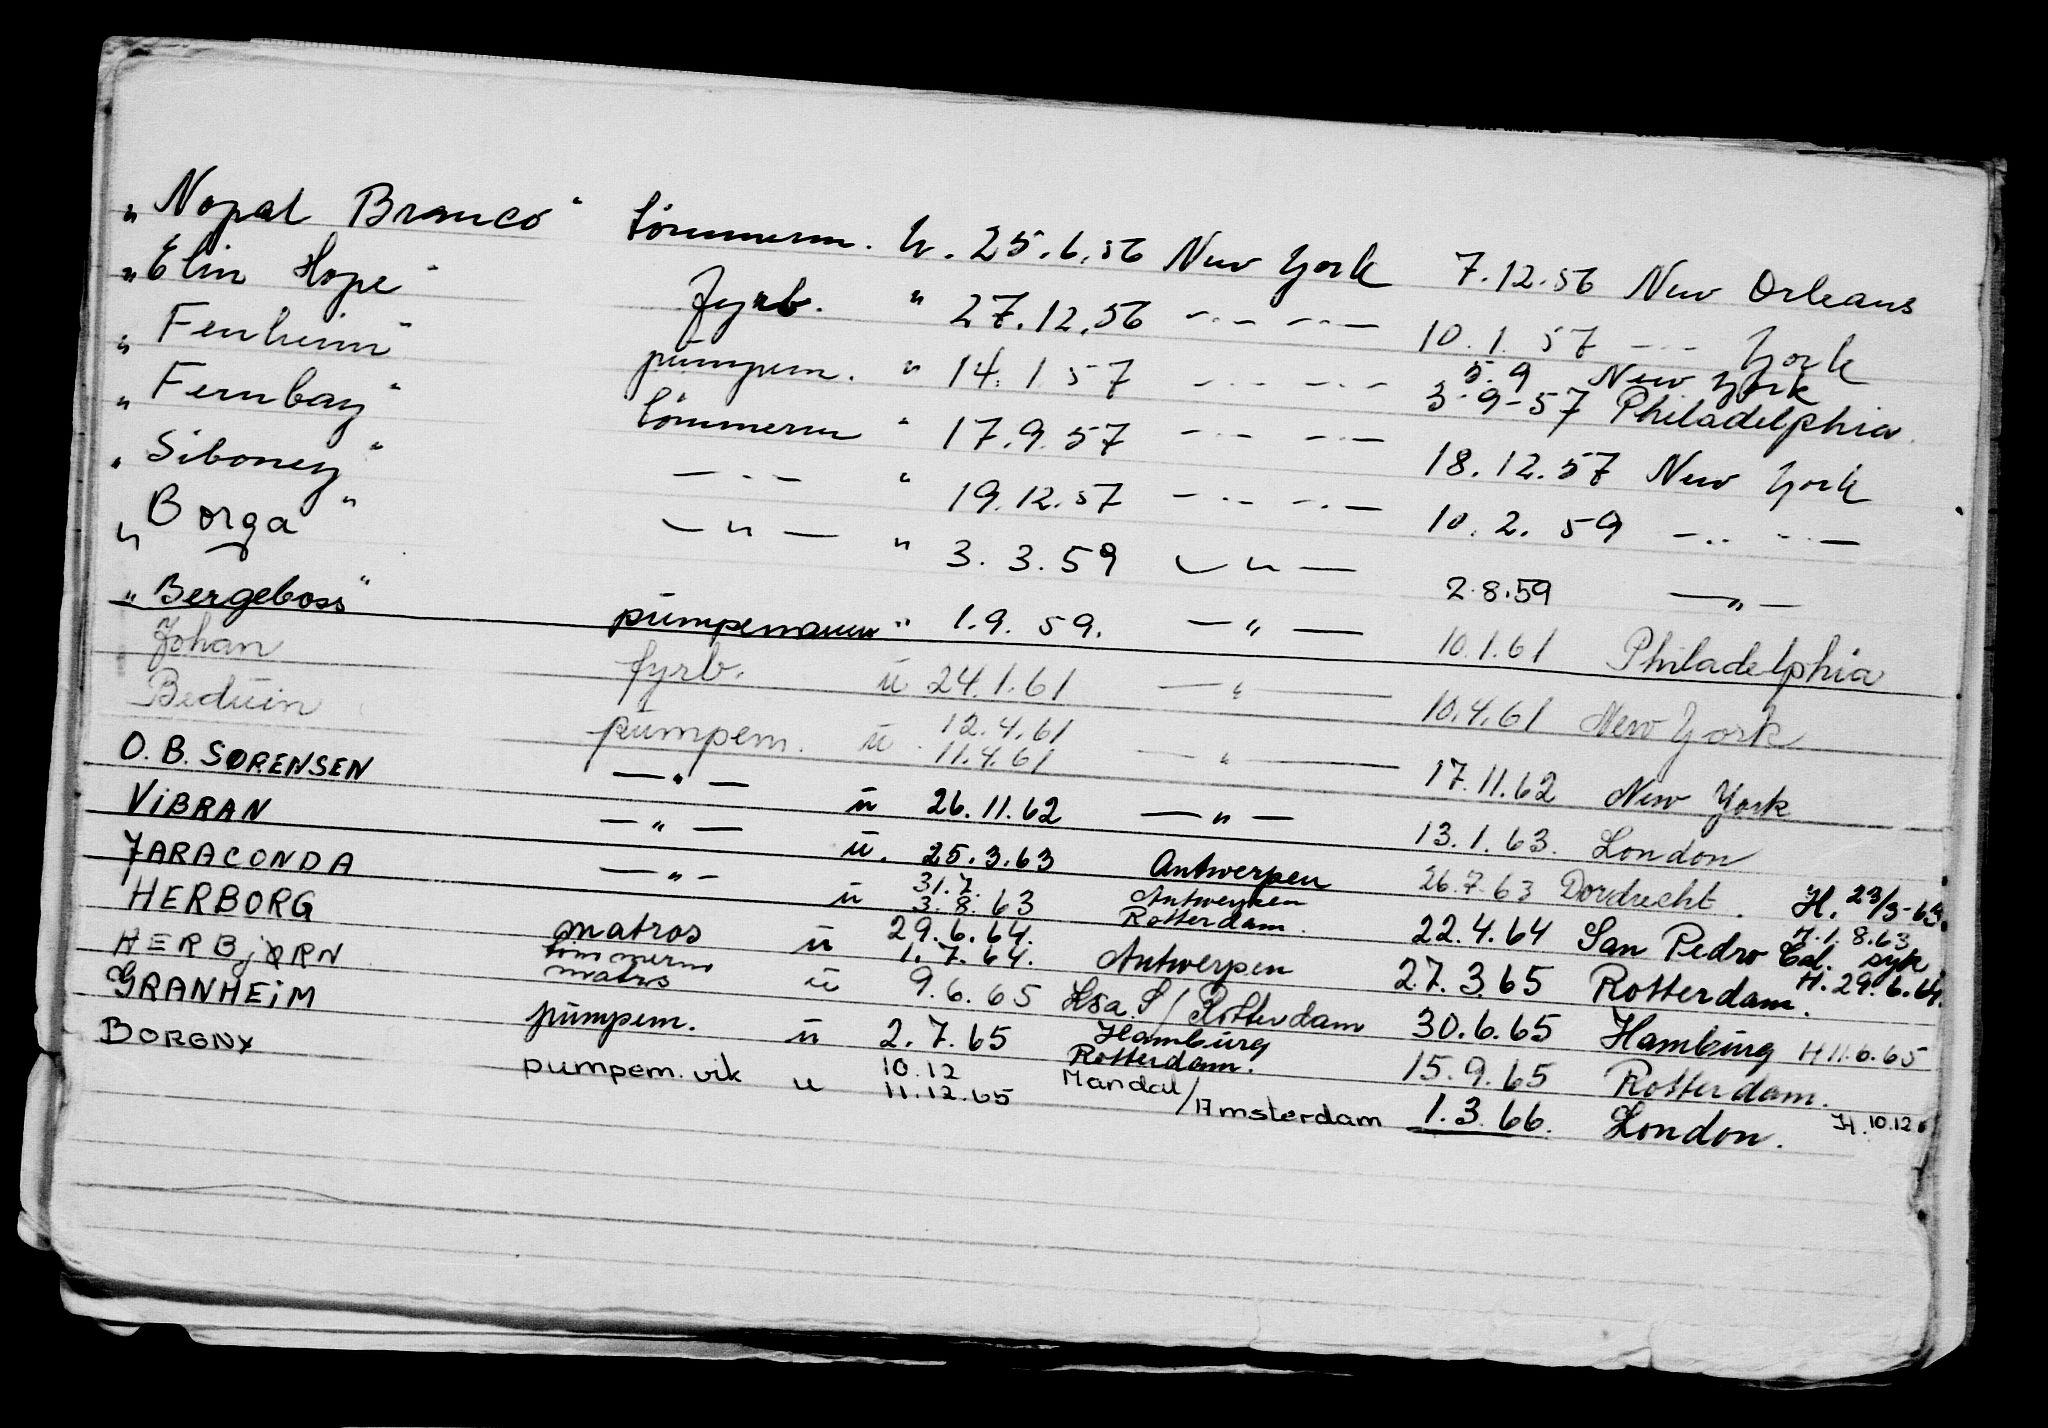 „ Nopal Branco " tömmerm. u. 25.6.56 New York 7.12.56 New Orleans
„ Elin Hope " fyrb. " 27.12.56 — " — — " — 10.1.57 — " — York
„ Fernheim " pumpem. " 14.1.57 — " — — " — 5.9 New York 3-9-57 Philadelphia
„ Fernbay " tömmerm " 17.9.57 — " — — " — 18.12.57 New York
„ Siboney " — " — " 19.12.57 — " — — " — 10.2.59 — " — — " —
„ Borga " — " — " 3.3.59 — " — 2.8.59 — " —
„ Bergeboss " pumpemann " 1.9.59. — " — 10.1.61 Philadelphia
Johan fyrb. u 24.1.61 — " — 10.4.61 New York
Beduin pumpem. u 12.4.61 11.4.61 — " — 17.11.62 New York
O. B. SØRENSEN — " — u 26.11.62 — " — 13.1.63. London
ViBRAN — " — u. 25.3.63 Antwerpen 26.7.63 Dordrecht. H. 23/3-63.
JARACONDA — " — u 31.7. 3.8.63 Antwerpen Rotterdam. 22.4.64 San Pedro Cal. syk H.1.8.63
HERBORG matros tömmerm u 29.6.64. 1.7.64. Antwerpen 27.3.65 Rotterdam. H. 29.6.64.
HERBjØRN matros u 9.6.65 / Rotterdam 30.6.65 Hamburg H 11.6.65
GRANHEiM pumpem. u 2.7.65 Hamburg Rotterdam. 15.9.65 Rotterdam.
BORGNY pumpem. vik u 10.12 11.12.65 Mandal / Amsterdam 1.3.66. London. H. 10.12